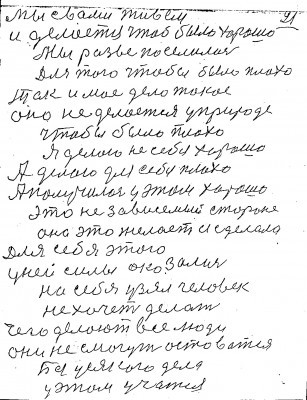 Мы свами живем 91
и делается чтоб было хорошо
Мы разве поселился
Для того чтобы было плохо
Так и мое дело такое
оно не делается уприроде
чтобы было плохо
Я делаю не себя хорошо
А делаю для себя плохо
А получился уэтом хорошо
это не зависемый стороне
она это желает и сделала
Для себя этого
уней силы оказалися
на себя узял человек
не хочет делат
чего делают все люди
они не смогут остатся
уэтом учатся